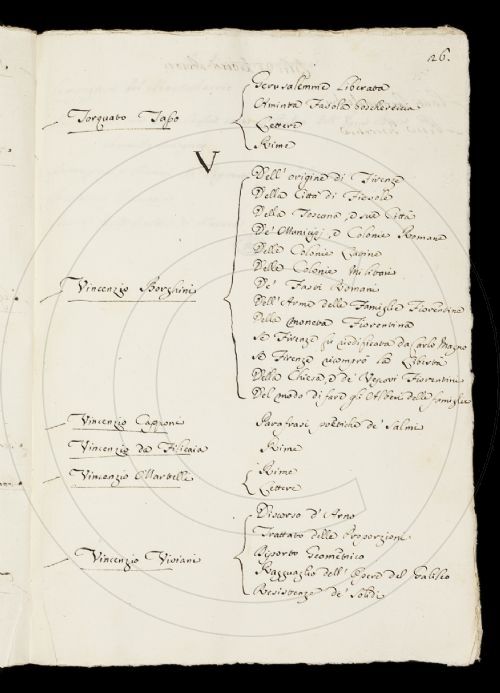 26.
Gerusalemme Liberata
Aminta Favola boschereccia
Torquato Tasso
Lettere
Rime
V
Dell' origine di Firenze
Della Città di Fiesole
Della Toscana, e sue Città
De' Municipj, e Colonie Romane
Delle Colonie Latine
Delle Colonie Militari
Vincenzio Borghini
De' Fasti Romani
Dell' Arme delle Famiglie Fiorentine
Della Moneta Fiorentina
Se Firenze fu riedificata da Carlo Magno
Se Firenze ricomprò la Libertà
Della Chiesa, e de' Vescovi Fiorentini
Del modo di fare gli Alberi delle famiglie
Vincenzio Cappone
Parafrasi poetiche de' Salmi
Vincenzio da Filicaia
Rime
Vincenzio Martelli
Rime
Lettere
Discorso d' Arno
Trattato delle Proporzioni
Vincenzio Viviani
Diporto Geometrico
Ragguaglio dell' Opere del Galileo
Resistenze de' Solidi